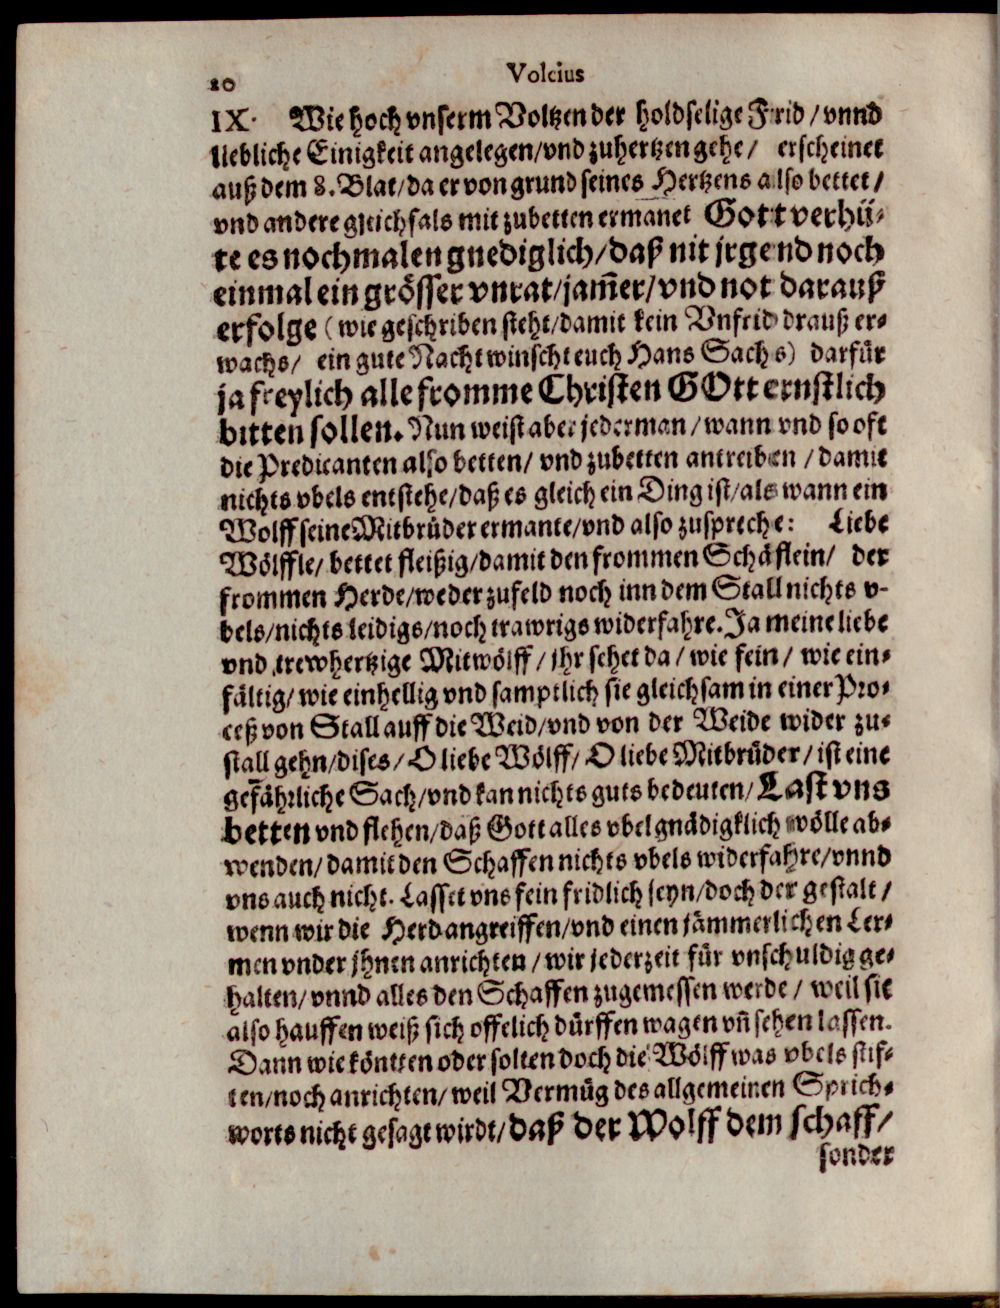 20
Volcius
IX. Wie hoch vnserm Voltzen der holdselige Frid / vnnd
liebliche Einigkeit angelegen/vnd zuhertzen gehe/ erscheinet
auß dem 8. Blat/da er von grund seines Hertzens also bettet/
vnd andere gleichfals mit zubetten ermanet Gott verhü-
te es nochmalen gnediglich/daß nit jrgend noch
einmal ein grösser vnrat/jam̃er/vnd not darauß
erfolge (wie geschriben steht/damit kein Vnfrid drauß er-
wachs/ ein gute Nacht winscht euch Hans Sachs) darfür
ja freylich alle fromme Christen GOtt ernstlich
bitten sollen. Nun weist aber jederman/wann vnd so oft
die Predicanten also betten/ vnd zubetten antreiben / damit
nichts vbels entstehe/daß es gleich ein Ding ist/als wann ein
Wolff seine Mitbrüder ermante/vnd also zuspreche: Liebe
Wölffle/ bettet fleißig/damit den frommen Schäflein/ der
frommen Herde/weder zufeld noch inn dem Stall nichts v-
bels/nichts leidigs/noch trawrigs widerfahre. Ja meine liebe
vnd trewhertzige Mitwölff / jhr sehet da / wie fein / wie ein-
fältig/ wie einhellig vnd samptlich sie gleichsam in einer Pro-
ceß von Stall auff die Weid/vnd von der Weide wider zu-
stall gehn/dises/O liebe Wölff/ O liebe Mitbrüder/ist eine
gefährliche Sach/vnd kan nichts guts bedeuten/ Last vns
betten vnd flehen/daß Gott alles vbel gnädigklich wölle ab-
wenden/damit den Schaffen nichts vbels widerfahre/vnnd
vns auch nicht. Lasset vns fein fridlich seyn/doch der gestalt/
wenn wir die Herd angreiffen/vnd einen jämmerlichen Ler-
men vnder jhnen anrichten / wir jederzeit für vnschuldig ge-
halten/vnnd alles den Schaffen zugemessen werde / weil sie
also hauffen weiß sich offelich dürffen wagen vñ sehen lassen.
Dann wie köntten oder solten doch die Wölff was vbels stif-
ten/noch anrichten/ weil Vermüg des allgemeinen Sprich-
worts nicht gesagt wirdt/daß der Wolff dem schaff/
sonder